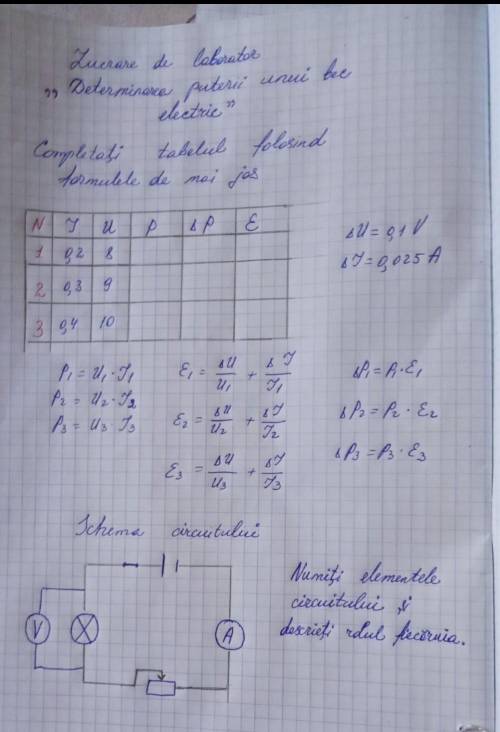 Lucrare de laborator
„Determinarea puterii unui bec
electric”
Completați tabelul folosind
formulele de mai jos
N I U P ΔP Ɛ
1 0,2 8
2 0,3 9
3 0,4 10
ΔU = 0,1 V
ΔI = 0,025 A
P₁ = U₁ · I₁
P₂ = U₂ · I₂
P₃ = U₃ · I₃
Ɛ₁ = ΔU/U₁ + ΔI/I₁
Ɛ₂ = ΔU/U₂ + ΔI/I₂
Ɛ₃ = ΔU/U₃ + ΔI/I₃
ΔP₁ = P₁ · Ɛ₁
ΔP₂ = P₂ · Ɛ₂
ΔP₃ = P₃ · Ɛ₃
Schema circuitului
V
A
Numiți elementele
circuitului și
descrieți rolul fiecăruia.